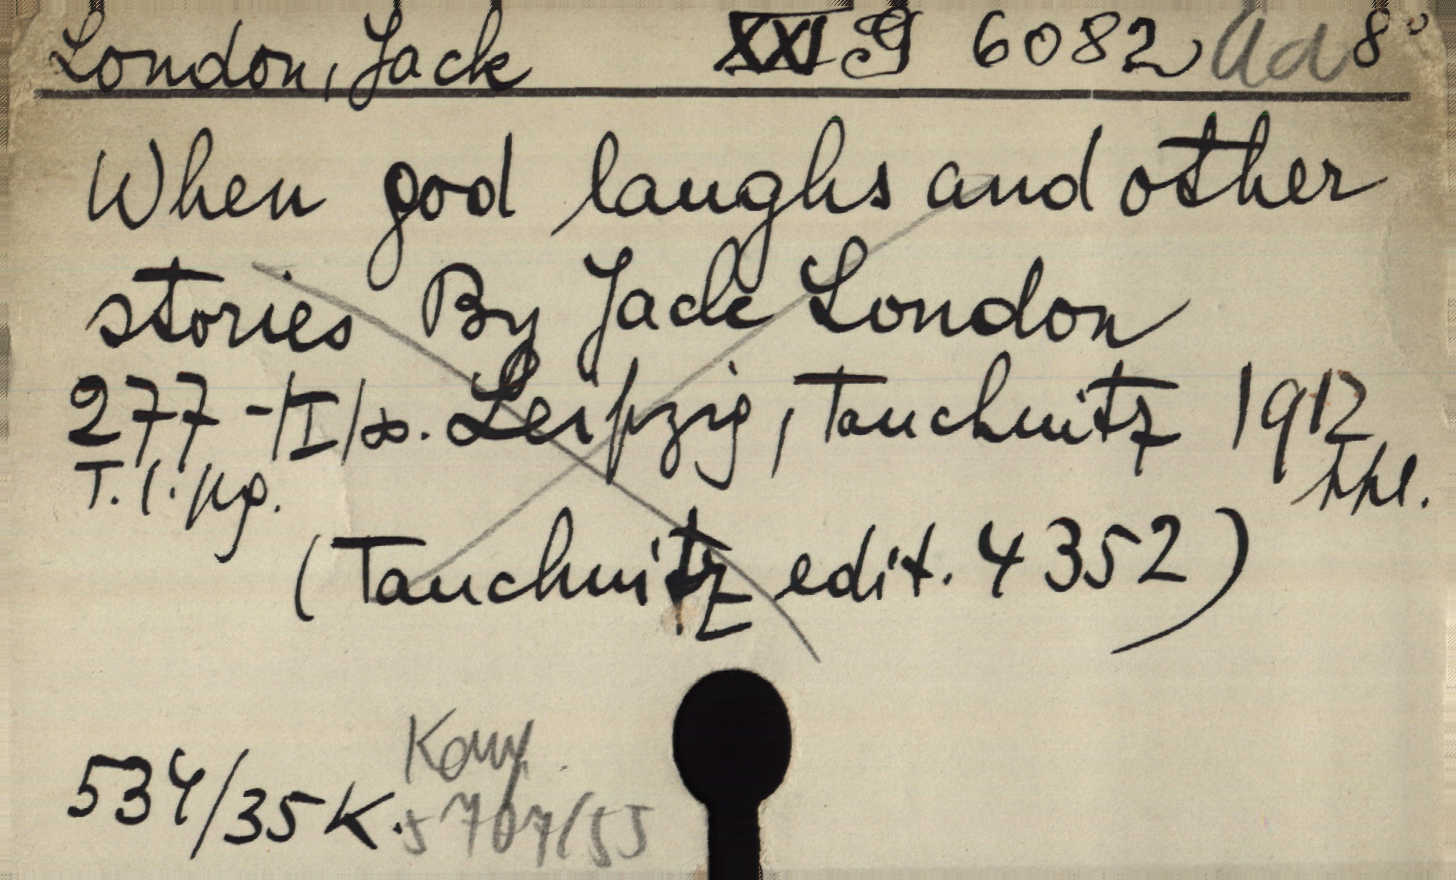 London, Jack XXI G 6082 Ad 8°
When god laughs and other
stories By Jack London
277 -|I| s. Leipzig, Tauchnitz 1912
T. l. pg. hkl.
(Tauchnitz edit. 4352)
Kow
534/35 K. 5707/55